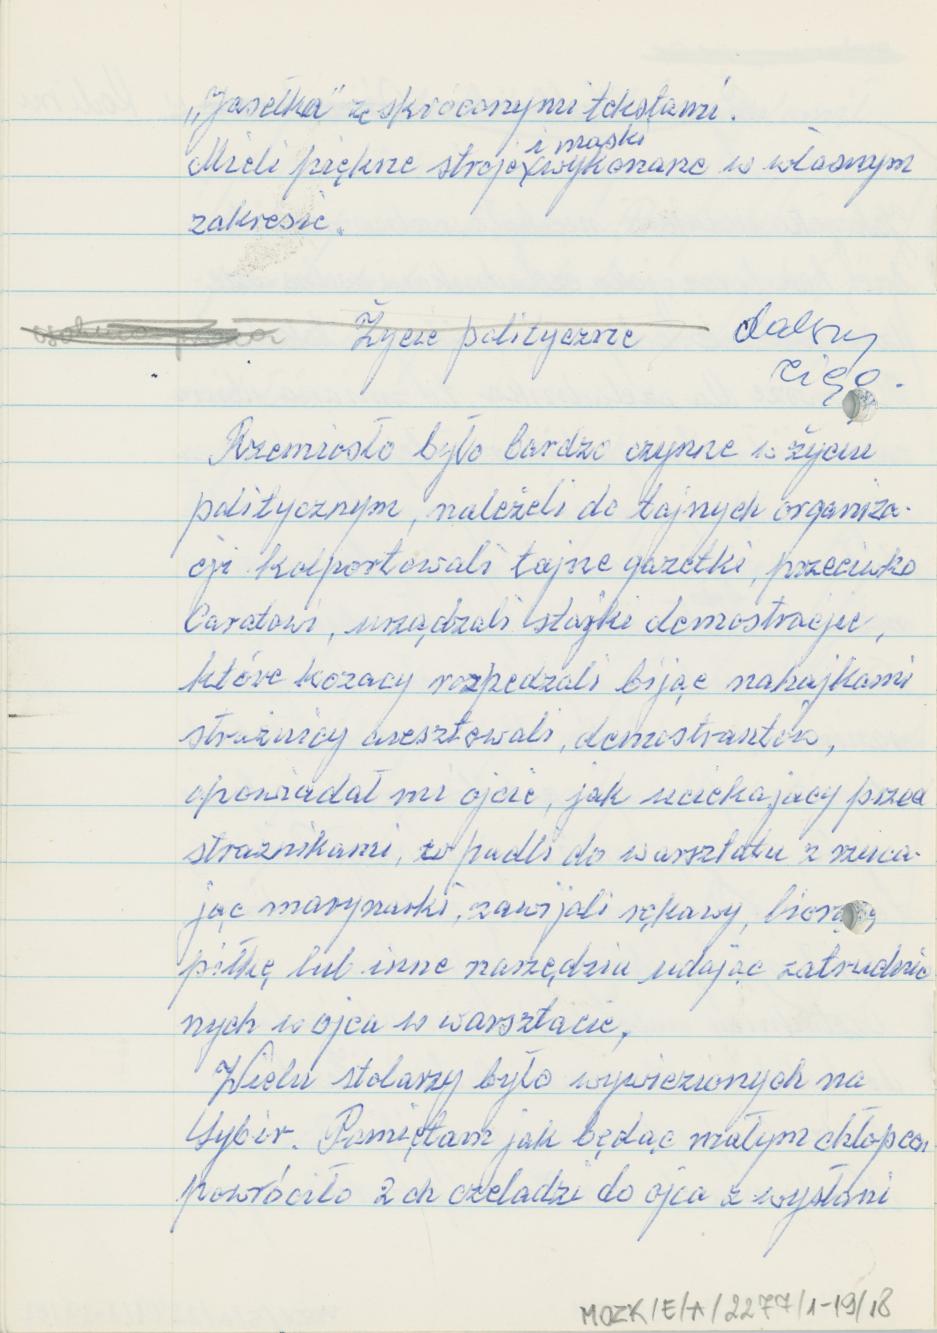 „Jasełka" ze skróconymi tekstami.
i maski
Mieli piękne stroje wykonane w własnym
zakresie.
Życie polityczne dalszy
ciąg.
Rzemiosło było bardzo czynne w życiu
politycznym, należeli do tajnych organiza-
cji kolportowali tajne gazetki, przeciwko
Caratowi, urządzali stajki demostracjie,
które kozacy rozpędzali bijąc nahajkami
strażnicy aresztowali, demostrantów,
opowiadał mi ojcie, jak uciekajacy przed
straznikami, wpadli do warsztatu z rzuca-
jąc marynarki, zawijali rękawy, biorąc
piłkę lub inne narzędziu udając zatrudnio
nych w ojca w warsztacie.
Wielu stolarzy było wywiezionych na
Sybir. Pamiętam jak będąc małym chłopcem
powróciło 2 ch czeladzi do ojca z wysłani
MOZK/E/A/2277/1-19/18